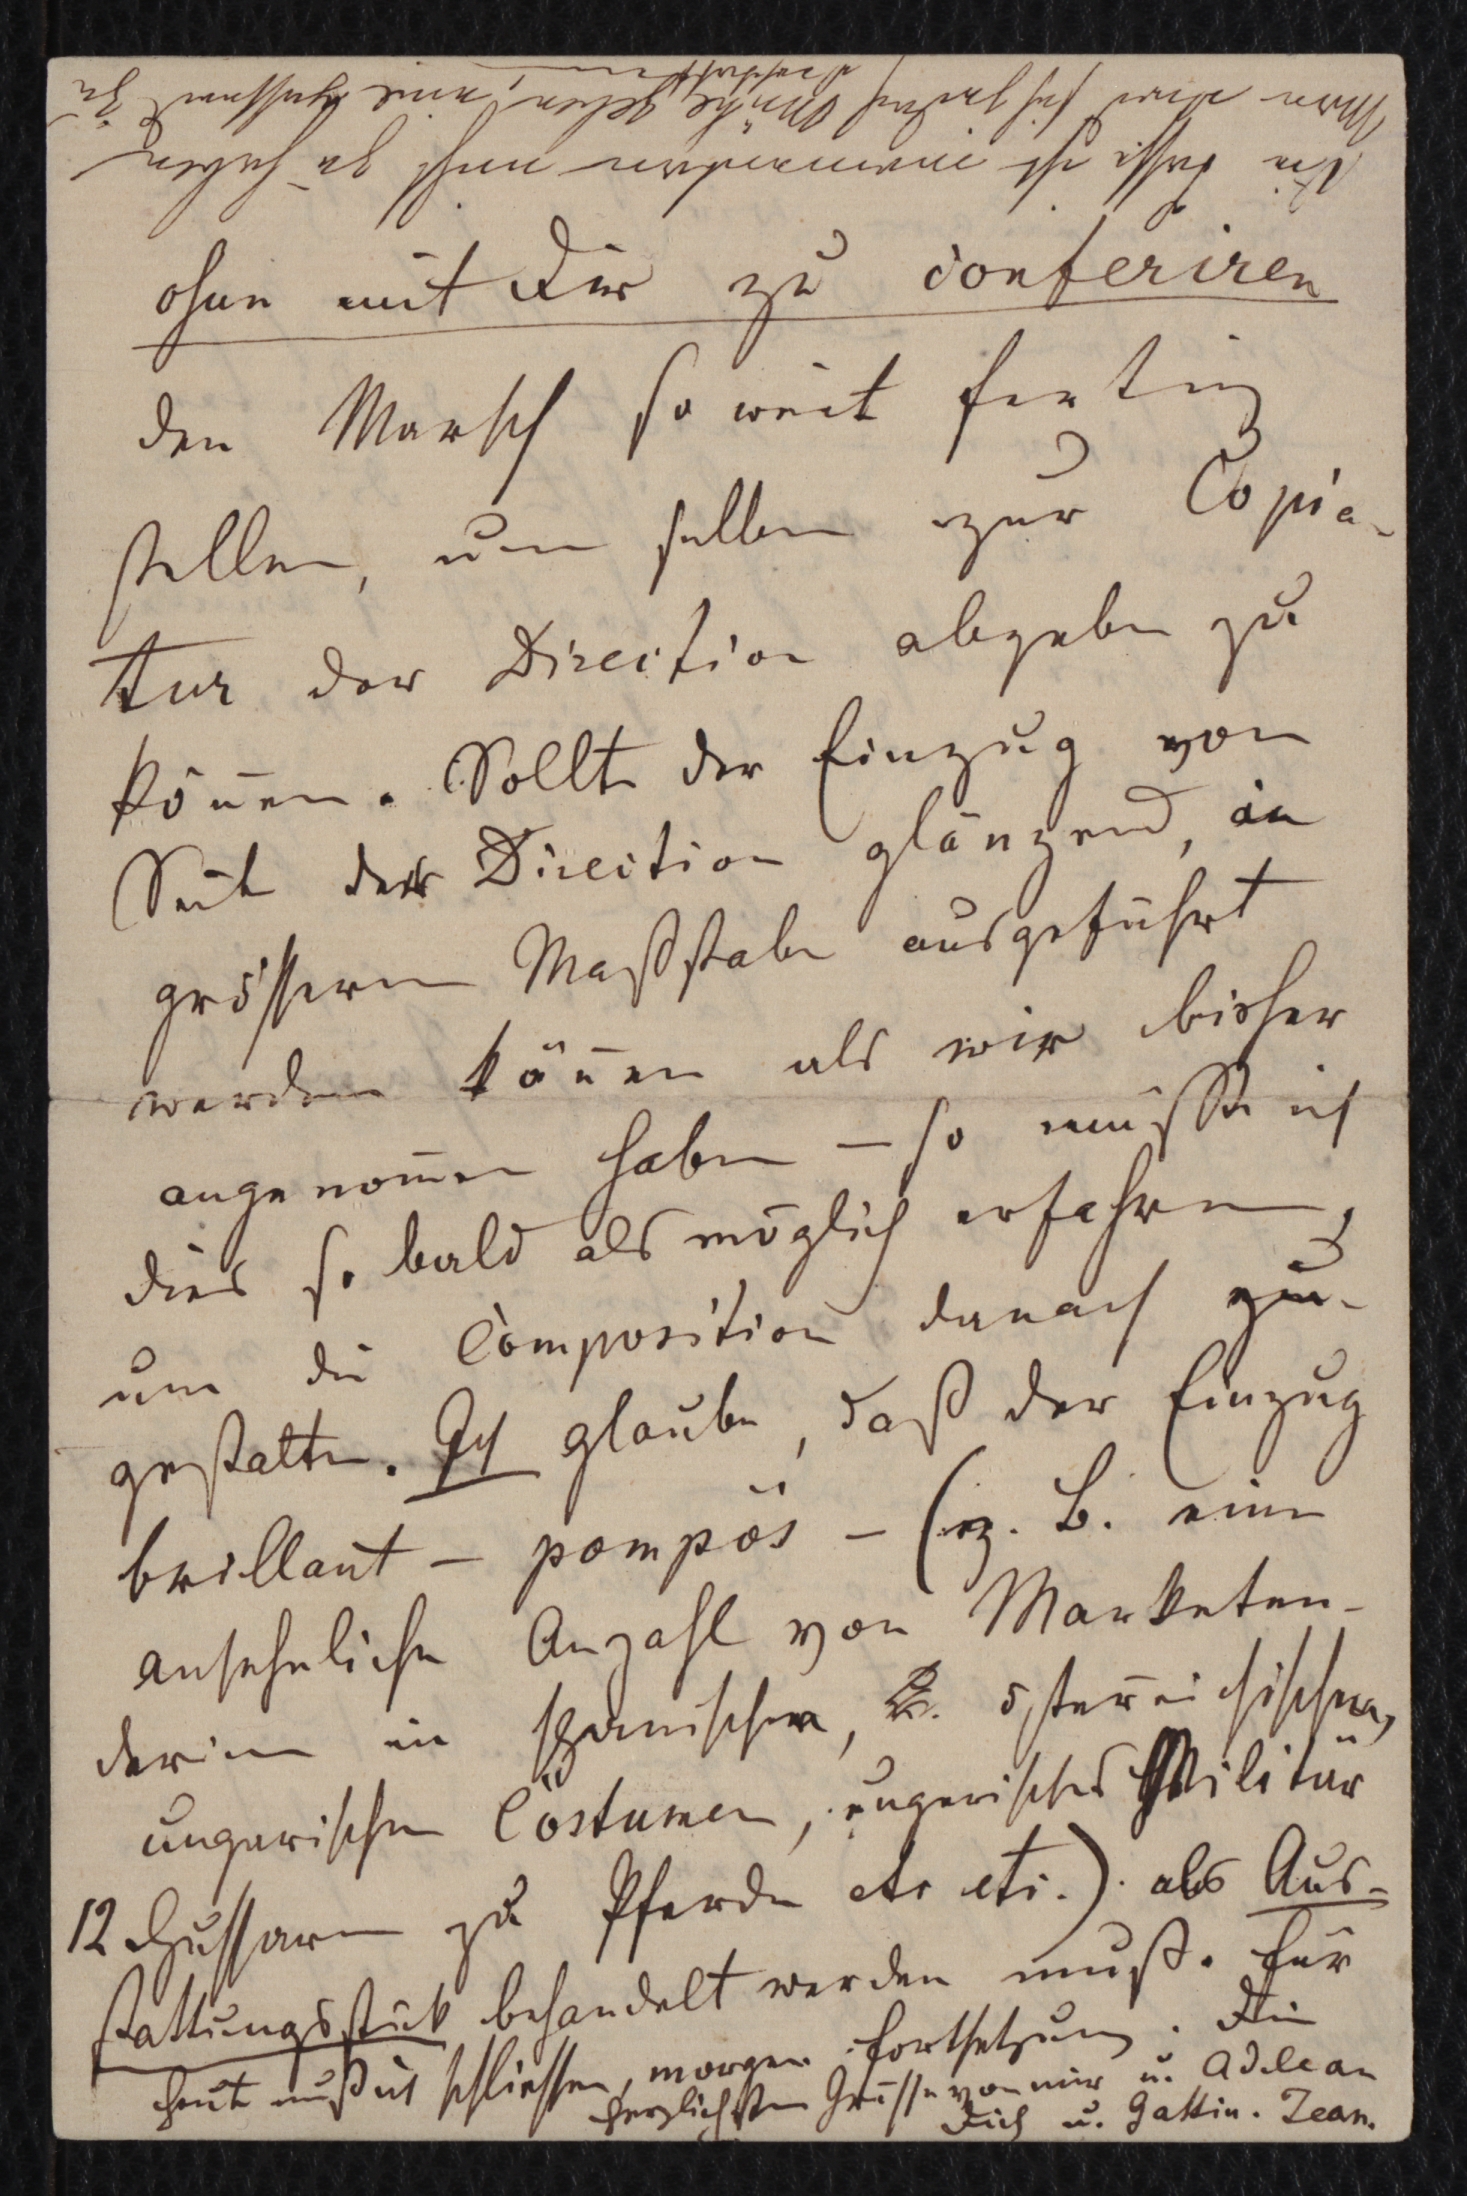 ohne mit Dir zu conferiren
den Marsch so weit fertig
stellen, um selben zur Copia-
tur der Direction abgeben zu
können. Sollte der Einzug von
Seite der Direction glänzend, in
grösserm Maßstabe ausgeführt
werden können als wir bisher
angenommen haben – so müsste ich
dies so bald als möglich erfahren,
um die Composition danach zu
gestalten. Ich glaube, daß der Einzug
brillant – pompös – (z. B. eine
ansehnliche Anzahl von Marketen-
derinen in spanischen, österreichischen,
ungarischen Costumen, ungarisches Militär
12 Hussaren zu Pferde etc etc.) als Aus-
stattungsstück behandelt werden muß. Für
heute muß ich schliessen, morgen Fortsetzung. Die
herzlichsten Grüsse von mir u. Adele an
Dich u. Gattin. Jean.
Die Hast ist immerhin nicht zu
Man wird sich Mühe geben, eine zu